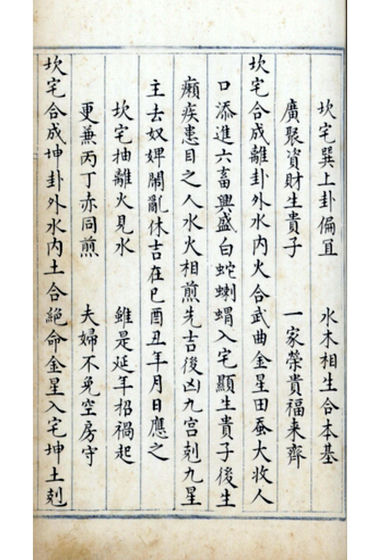 坎宅巽上卦偏宜　水木相生合本基
廣聚資財生貴子　一家榮貴福来齊
坎宅合成離卦外水内火合武曲金星田蚕大收人
口添進六畜興盛白蛇蝲蝟入宅顯生貴子後生
癩疾患目之人水火相煎先吉後凶九宫剋九星
主去奴婢鬧亂休吉在巳酉丑年月日應之
坎宅抽離火見水　雖是延年招禍起
更兼丙丁赤同煎　夫婦不免空房守
坎宅合成坤卦外水内土合絶命金星入宅坤土剋